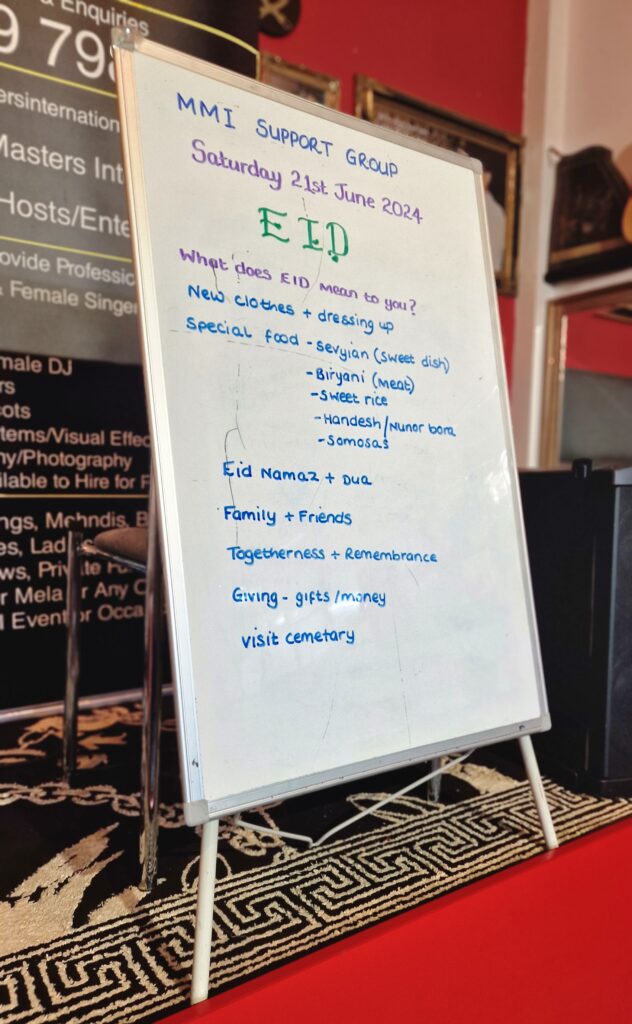 & Enquiries
9 798
ersinternation
Masters Int
Hosts/Ente
rovide Professio
& Female Singer
male DJ
rs
cots
tems/Visual Effec
ny/Photography
ilable to Hire for
ngs, Mehndis, B
es, Lad
ws, Private
r Mela or Any
l Event or Occa
MMI SUPPORT GROUP
Saturday 21st June 2024
EID
What does EID mean to you?
New clothes + dressing up
Special food - sevyian (sweet dish)
- Biryani (meat)
- sweet rice
- Handesh/Nunor bora
- Somosas
Eid Namaz + Dua
Family + Friends
Togetherness + Remembrance
Giving - gifts/money
visit cemetary